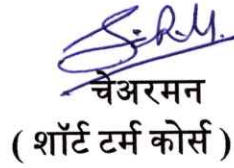 चेअरमन
( शॉर्ट टर्म कोर्स )